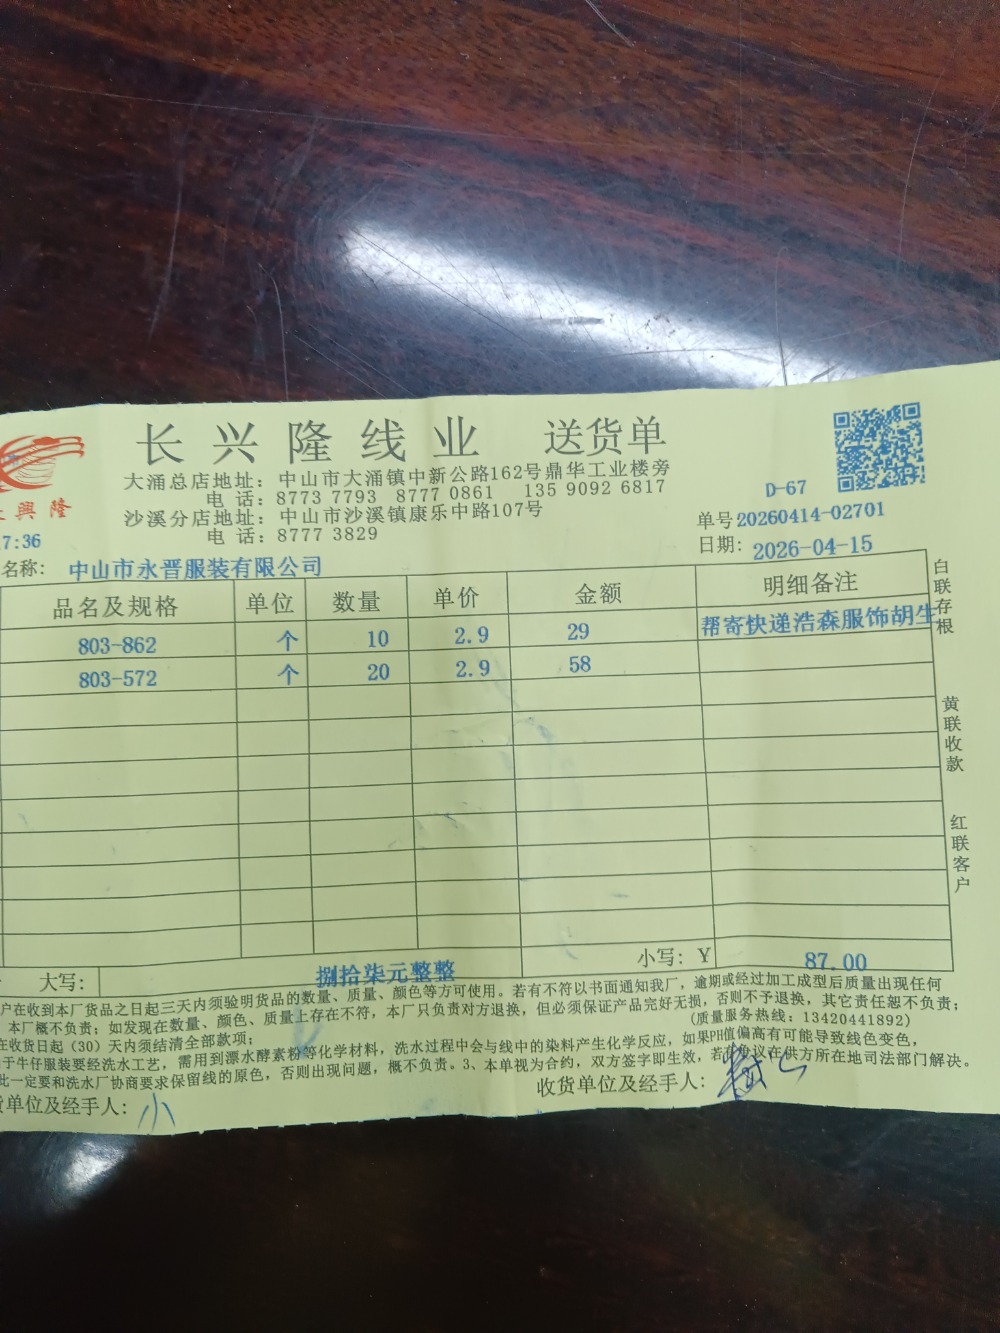 长兴隆线业 送货单
大涌总店地址：中山市大涌镇中新公路162号鼎华工业楼旁
电 话：8773 7793 8777 0861 135 9092 6817
沙溪分店地址：中山市沙溪镇康乐中路107号
电 话：8777 3829
興隆
D-67
单号20260414-02701
日期：2026-04-15
7:36
名称： 中山市永晋服装有限公司
品名及规格 单位 数量 单价 金额 明细备注
803-862 个 10 2.9 29 帮寄快递浩森服饰胡生
803-572 个 20 2.9 58
白联存根
黄联收款
红联客户
大写： 捌拾柒元整整 小写：Y 87.00
户在收到本厂货品之日起三天内须验明货品的数量、质量、颜色等方可使用。若有不符以书面通知我厂，逾期或经过加工成型后质量出现任何
本厂概不负责；如发现在数量、颜色、质量上存在不符，本厂只负责对方退换，但必须保证产品完好无损，否则不予退换，其它责任恕不负责；
在收货日起（30）天内须结清全部款项； (质量服务热线：13420441892)
于牛仔服装要经洗水工艺，需用到漂水酵素粉等化学材料，洗水过程中会与线中的染料产生化学反应，如果PH值偏高有可能导致线色变色，
此一定要和洗水厂协商要求保留线的原色，否则出现问题，概不负责。3、本单视为合约，双方签字即生效，若有争议在供方所在地司法部门解决。
货单位及经手人：小 收货单位及经手人：